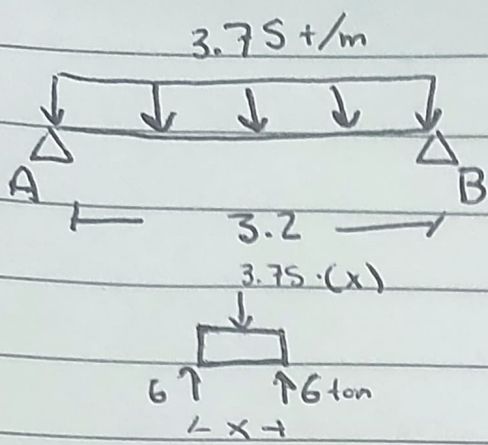 3.75 t/m
A B
3.2
3.75 · (x)
6 6 ton
x